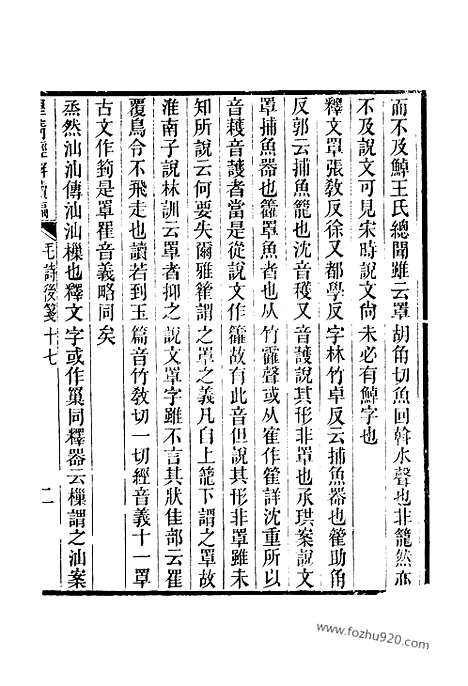 而不及䱜王氏總聞雖云罩胡角切魚回斡水聲也非籠然亦
不及說文可見宋時說文尚未必有䱜字也
釋文罩張敎反徐又都學反字林竹卓反云捕魚器也篧助角
反郭云捕魚籠也沈音穫又音護說其形非罩也承珙案說文
罩捕魚器也籱罩魚者也从竹靃聲或从隺作篧詳沈重所以
音穫音護者當是從說文作籱故有此音但說其形非罩雖未
知所說云何要失爾雅篧謂之罩之義凡自上籠下謂之罩故
淮南子說林訓云罩者抑之說文罩字雖不言其狀隹部云䍜
覆鳥令不飛走也讀若到玉篇音竹敎切一切經音義十一罩
古文作箌是罩䍜音義略同矣
烝然汕汕傳汕汕樔也釋文字或作巢同釋器云樔謂之汕案
皇淸經解續編
毛詩後箋十七
二
www.fozhu920.com